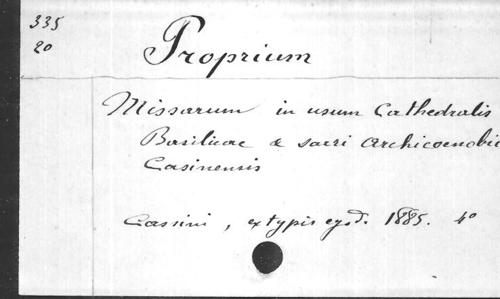 335
20
Proprium
Missarum in usum Cathedralis
Basilicae & sacri Archicoenobii
Casinensis
Cassini, ex typis ejsd. 1885. 4°